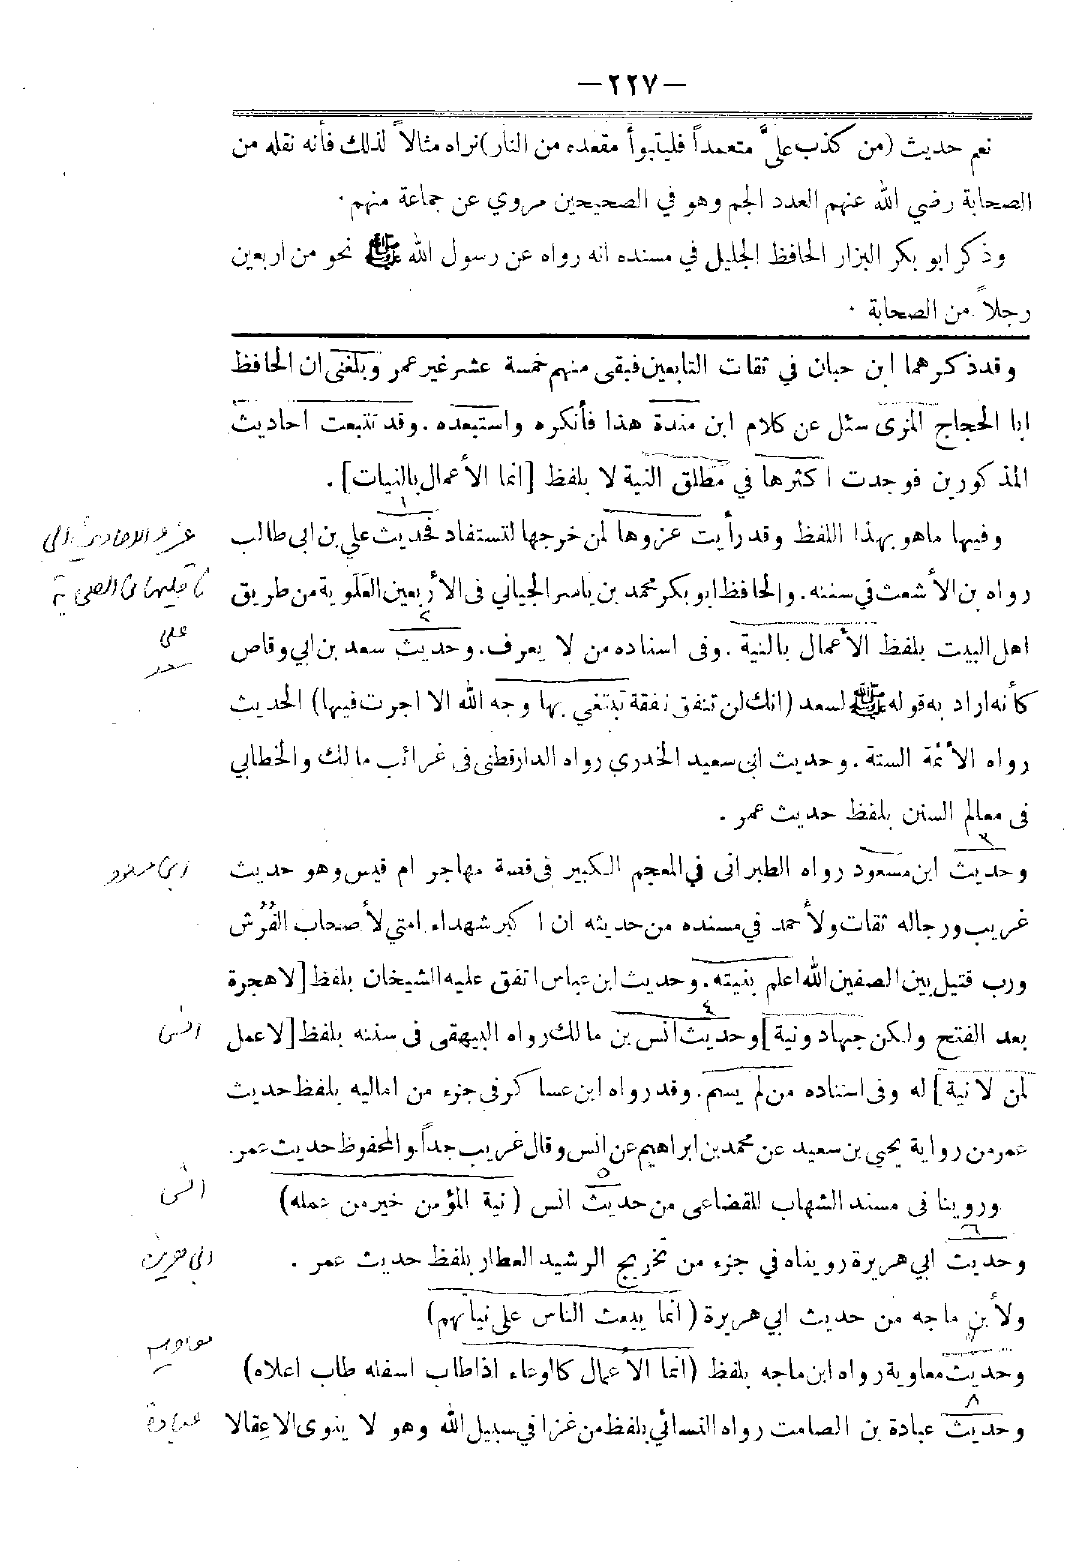 — ٢٢٧ —
نعم حديث (من كذب عليَّ متعمداً فليتبوأ مقعده من النار) نراه مثالاً لذلك فأنه نقله من
الصحابة رضي الله عنهم العدد الجم وهو في الصحيحين مروي عن جماعة منهم .
وذكر ابو بكر البزار الحافظ الجليل في مسنده انه رواه عن رسول الله ﷺ نحو من اربعين
رجلاً من الصحابة .
وقد ذكرهما ابن حبان في ثقات التابعين فبقى منهم خمسة عشر غير عمر وبلغنى ان الحافظ
ابا الحجاج المزى سئل عن كلام ابن مندة هذا فأنكره واستبعده . وقد تتبعت احاديث
المذكورين فوجدت اكثرها في مطلق النية لا بلفظ [انما الأعمال بالنيات] .
١
وفيها ماهو بهذا اللفظ وقد رأيت عزوها لمن خرجها لتستفاد فحديث علي بن ابى طالب
عزو الاحاديث الى
رواه بن الأشعث في سننه . والحافظ ابو بكر محمد بن ياسر الجياني فى الأربعين العَلَوية من طريق
من الصحابة
٢
اهل البيت بلفظ الأعمال بالنية . وفى اسناده من لا يعرف . وحديث سعد بن ابي وقاص
على
سعد
كأنه اراد به قوله ﷺ لسعد (انك لن تنفق نفقة تبتغي بها وجه الله الا اجرت فيها) الحديث
رواه الأئمة الستة . وحديث ابى سعيد الخدري رواه الدارقطنى فى غرائب مالك والخطابي
فى معالم السنن بلفظ حديث عمر .
٣
وحديث ابن مسعود رواه الطبرانى في المعجم الكبير فى قصة مهاجر ام قيس وهو حديث
ابن مسعود
غريب ورجاله ثقات ولأحمد في مسنده من حديثه ان اكبر شهداء امتي لأصحاب الفُرُش
ورب قتيل بين الصفين الله اعلم بنيته . وحديث ابن عباس اتفق عليه الشيخان بلفظ [لا هجرة
٤
بعد الفتح ولكن جهاد ونية] وحديث انس بن مالك رواه البيهقى فى سننه بلفظ [لا عمل
انس
لمن لا نية] له وفى اسناده من لم يسم . وقد رواه ابن عساكر في جزء من اماليه بلفظ حديث
عمر من رواية يحيى بن سعيد عن محمد بن ابراهيم عن انس وقال غريب جداً والمحفوظ حديث عمر .
٥
وروينا فى مسند الشهاب للقضاعى من حديث انس (نية المؤمن خير من عمله)
انس
٦
وحديث ابي هريرة رويناه في جزء من تخريج الرشيد العطار بلفظ حديث عمر .
ابي هريرة
ولأبن ماجه من حديث ابي هريرة (انما يبعث الناس على نياتهم)
٧
وحديث معاوية رواه ابن ماجه بلفظ (انما الأعمال كالوعاء اذا طاب اسفله طاب اعلاه)
معاوية
٨
وحديث عبادة بن الصامت رواه النسائي بلفظ من غزا في سبيل الله وهو لا ينوى الا عِقالا
عبادة